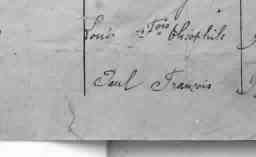 Louis Fois Théophile
Paul François